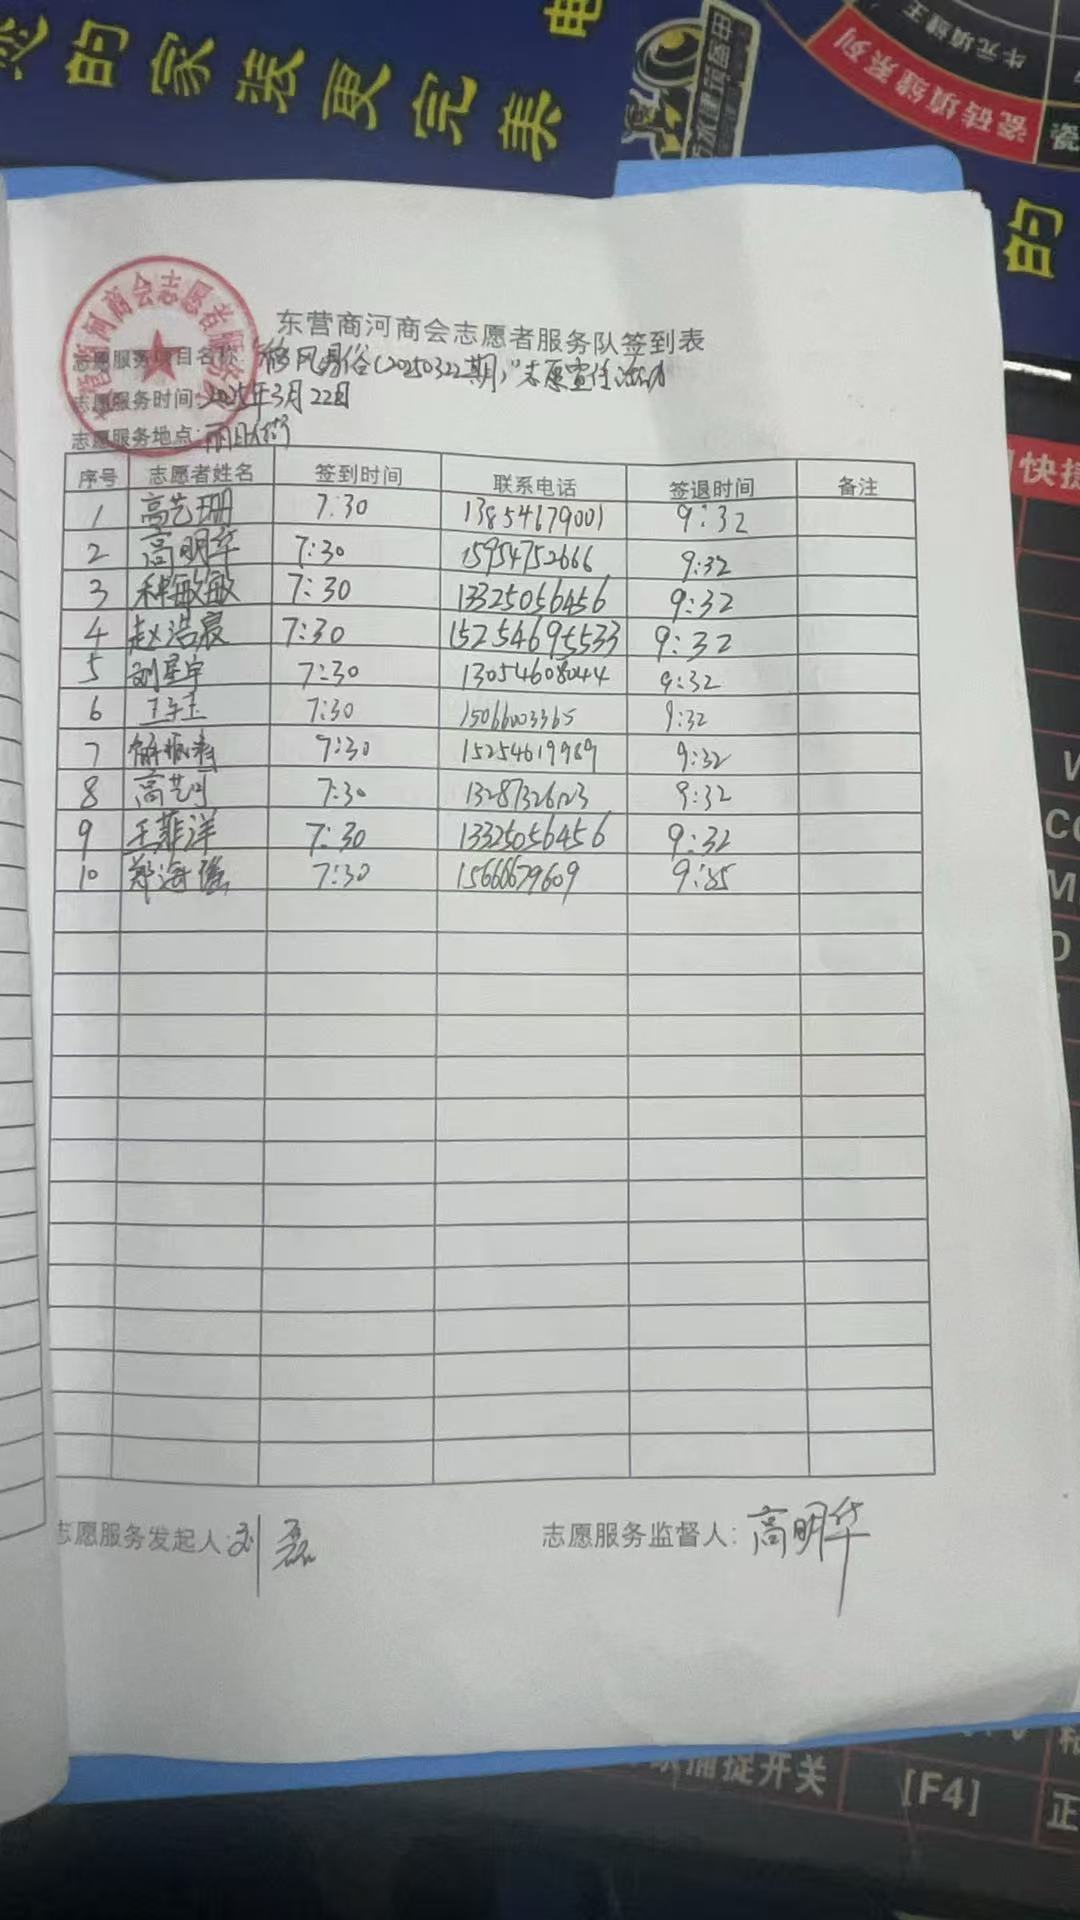 的家装更完美
电
瓷砖填缝系列
的
东营商河商会志愿者服务队签到表
志愿服务项目名称:"移风易俗(20250322期)"志愿宣传活动
志愿服务时间:2025年3月22日
志愿服务地点:
序号 志愿者姓名 签到时间 联系电话 签退时间 备注
1 高艺珊 7:30 13854679001 9:32
2 高明华 7:30 15954752666 9:32
3 种敏敏 7:30 13325056456 9:32
4 赵浩宸 7:30 15254695533 9:32
5 刘星宇 7:30 13054608044 9:32
6 7:30 15066003365 9:32
7 7:30 15254619969 9:32
8 高艺可 7:30 9:32
9 王菲洋 7:30 13325056456 9:32
10 郑海 7:30 15666679609 9:35
志愿服务发起人:刘磊
志愿服务监督人:高明华
快捷
捕捉开关
[F4]
正